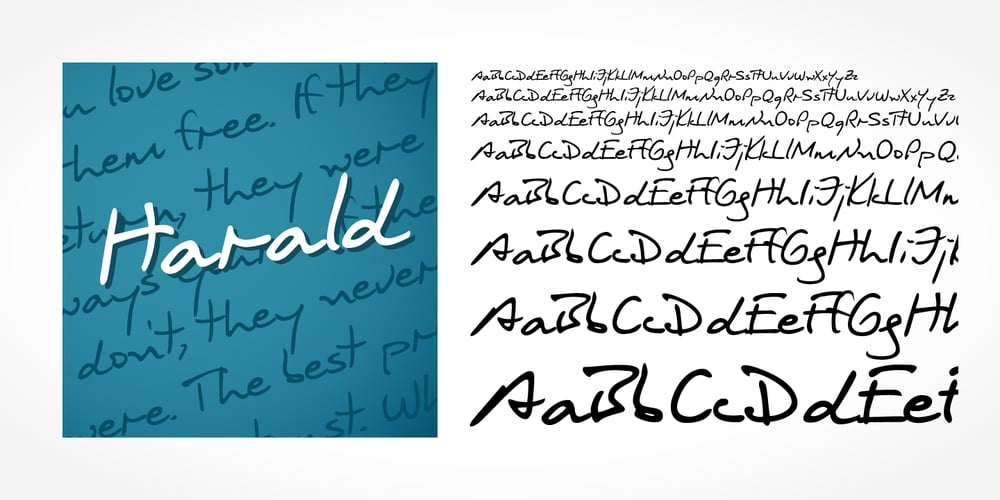 love
them free. If they
return, they were
Harald
don't, they never
were. The best
AaBbCcDdEeFfGgHhIiJjKkLlMmNnOoPpQqRrSsTtUuVvWwXxYyZz
AaBbCcDdEeFfGgHhIiJjKkLlMmNnOoPpQqRrSsTtUuVvWwXxYyZz
AaBbCcDdEeFfGgHhIiJjKkLlMmNnOoPpQqRrSsTtUuVv
AaBbCcDdEeFfGgHhIiJjKkLlMmNnOoPpQ
AaBbCcDdEeFfGgHhIiJjKkLlMm
AaBbCcDdEeFfGgHhIiJj
AaBbCcDdEeFfGgHh
AaBbCcDdEe